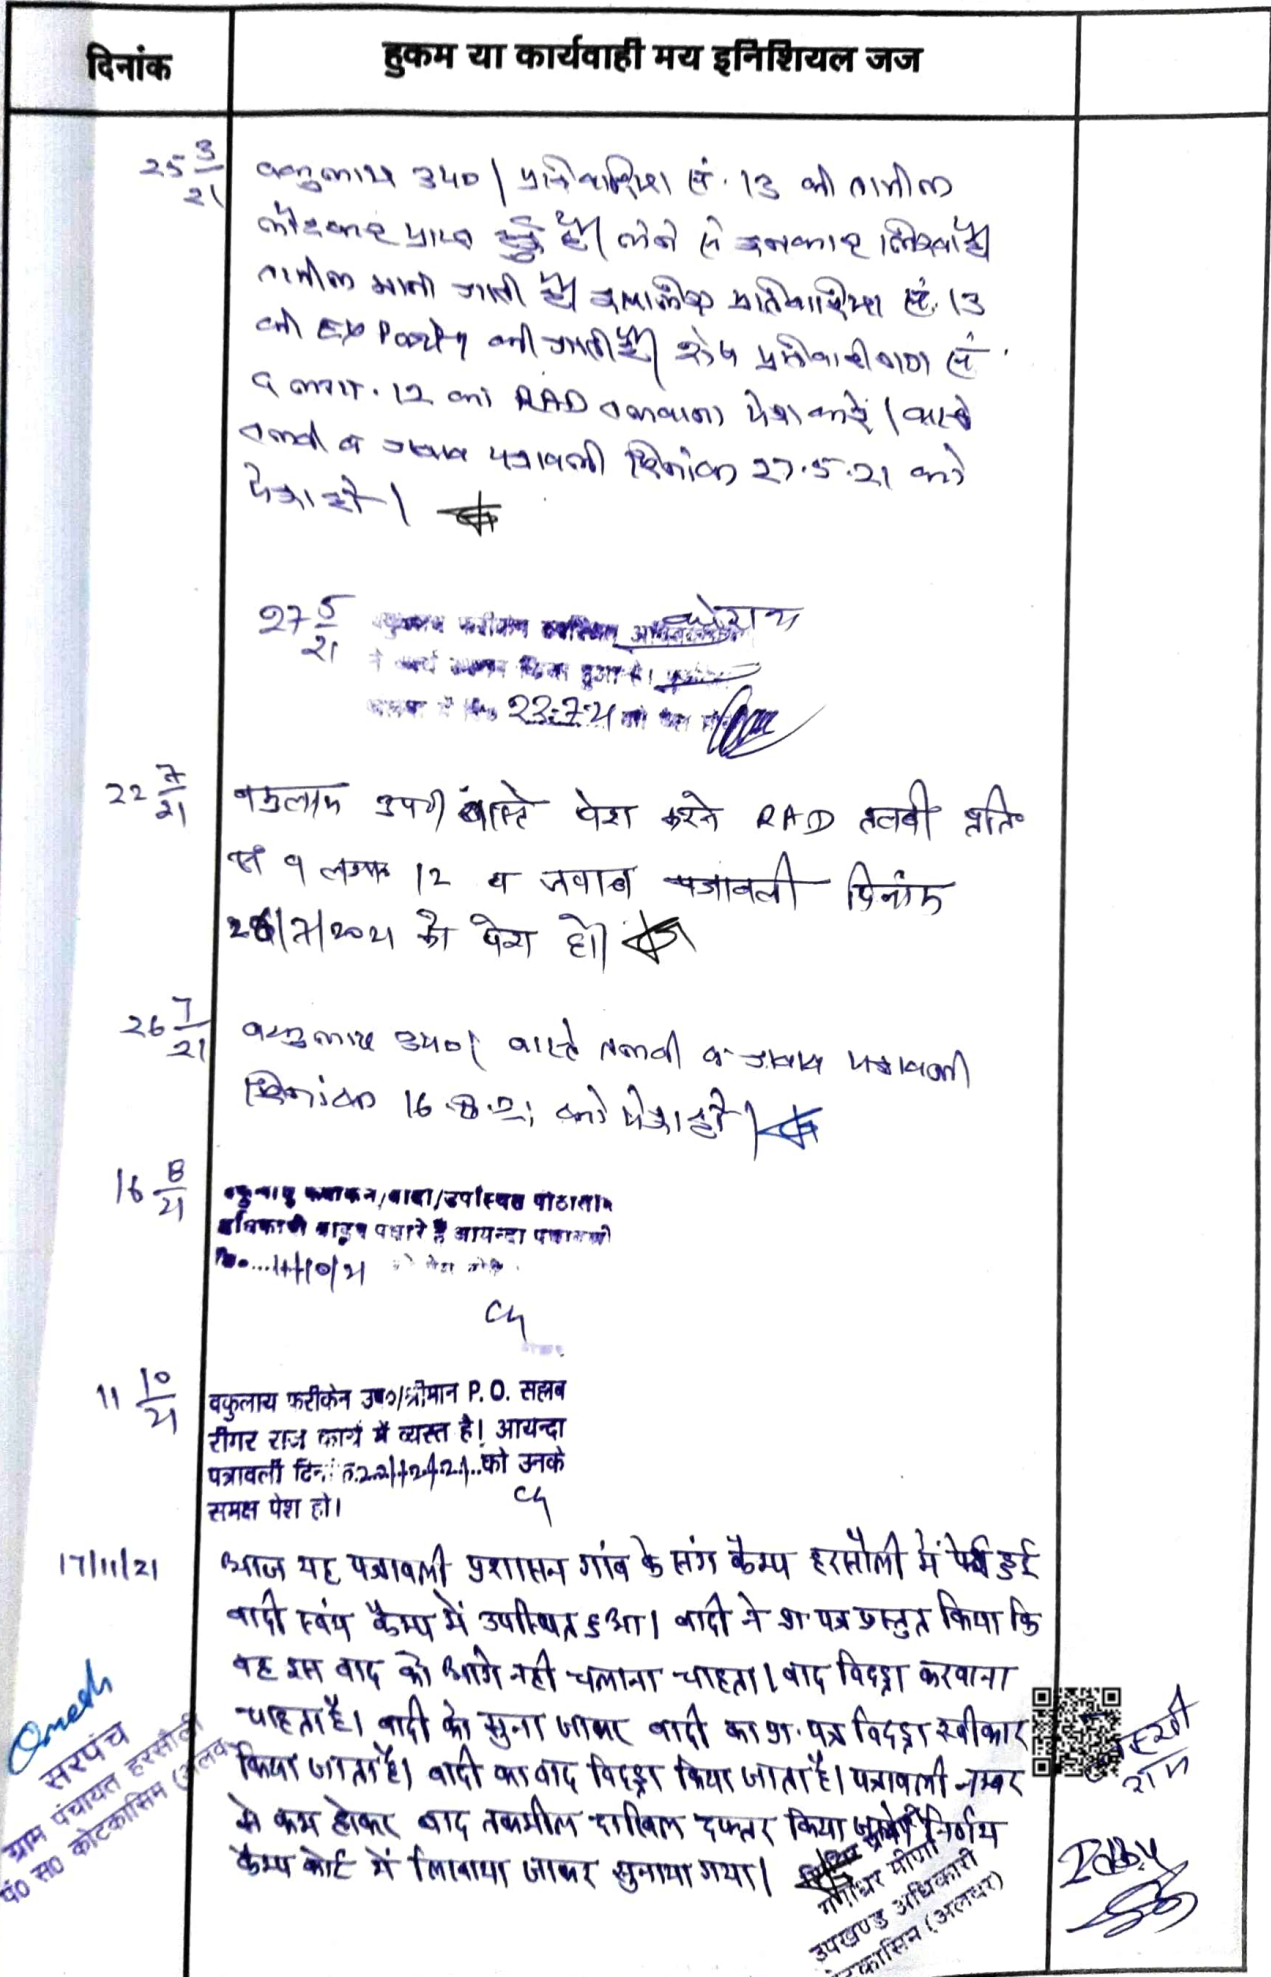 दिनांक
हुकम या कार्यवाही मय इनिशियल जज
25 3/21
वकुलाय उप0। प्रतिवादिया सं. 13 की तामील
लौटकर प्राप्त हुई है। लेने से इनकार लिखा है।
तामील मानी जाती है। इसलिए प्रतिवादिया सं. 13
की Ex Party की जाती है। शेष प्रतिवादीगण सं.
9 लगा. 12 का RAD तलवाना पेश करें। वास्ते
तलवी व जवाब पत्रावली दिनांक 27.5.21 को
पेश हो।
27 5/21
कोरोना
ने कार्य किया हुआ है।
22.7.21 को पेश हो
22 7/21
वकुलाय उप0। वास्ते पेश करने RAD तलबी प्रति0
सं 9 लगा0 12 व जवाब पत्रावली दिनांक
26/7/2021 को पेश हो।
26 7/21
वकुलाय उप0। वास्ते तलवी व जवाब पत्रावली
दिनांक 16.8.21 को पेश हो।
16 8/21
वादी/उपस्थित पीठासीन
अधिकारी आयन्दा पत्रावली
11/10/21 को पेश
11 10/21
वकुलाय फरीकेन उप0/श्रीमान P.O. साहब
दीगर राज कार्य में व्यस्त है! आयन्दा
पत्रावली दिनांक 22/12/21 को उनके
समक्ष पेश हो।
17/11/21
आज यह पत्रावली प्रशासन गांव के संग कैम्प हरसौली में पेश हुई
वादी स्वंय कैम्प में उपस्थित हुआ। वादी ने प्रा. पत्र प्रस्तुत किया कि
वह इस वाद को आगे नही चलाना चाहता। वाद विदड्रा करवाना
चाहता है। वादी को सुना जाकर वादी का प्रा. पत्र विदड्रा स्वीकार
किया जाता है। वादी का वाद विदड्रा किया जाता है। पत्रावली नम्बर
से कम होकर बाद तकमील दाखिल दफ्तर किया जावे। निर्णय
कैम्प कोर्ट में लिखाया जाकर सुनाया गया।
सरपंच
ग्राम पंचायत हरसौली
पं0 स0 कोटकासिम (अलवर)
गंगाधर मीणा
उपखण्ड अधिकारी
कोटकासिम (अलवर)